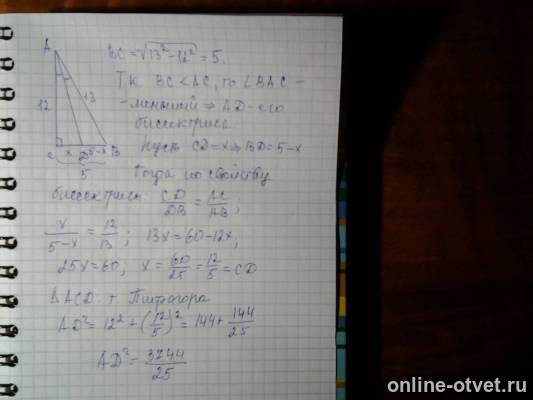 A
12
13
C x D 5-x B
5
BC = √13² - 12² = 5.
Т.к. BC < AC, то ∠BAC -
- меньший ⇒ AD - его
биссектриса
Пусть CD = x ⇒ BD = 5-x
Тогда по свойству
биссектрисы CD/DB = AC/AB ;
x/5-x = 12/13 ; 13x = 60-12x,
25x = 60; x = 60/25 = 12/5 = CD
Δ ACD т. Пифагора
AD² = 12² + (12/5)² = 144 + 144/25
AD² = 3744/25
online-otvet.ru